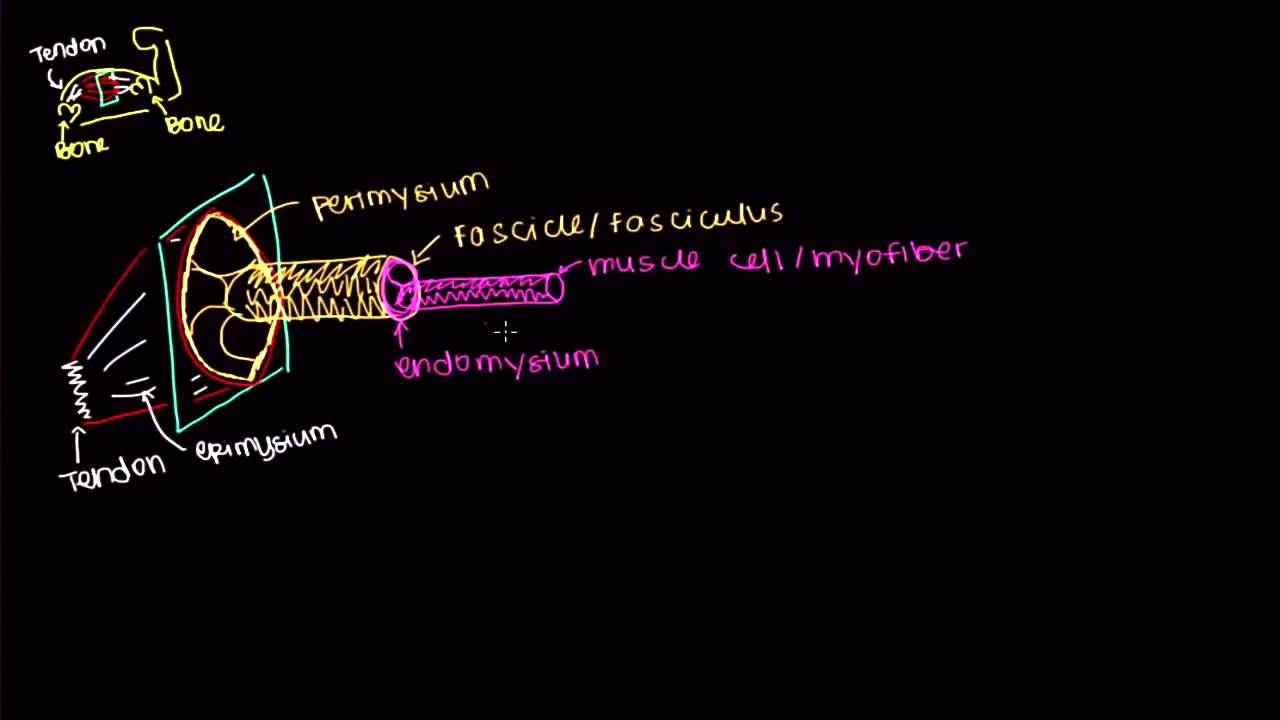 Tendon
Bone
Bone
perimysium
fascicle/fasciculus
muscle cell/myofiber
endomysium
epimysium
Tendon